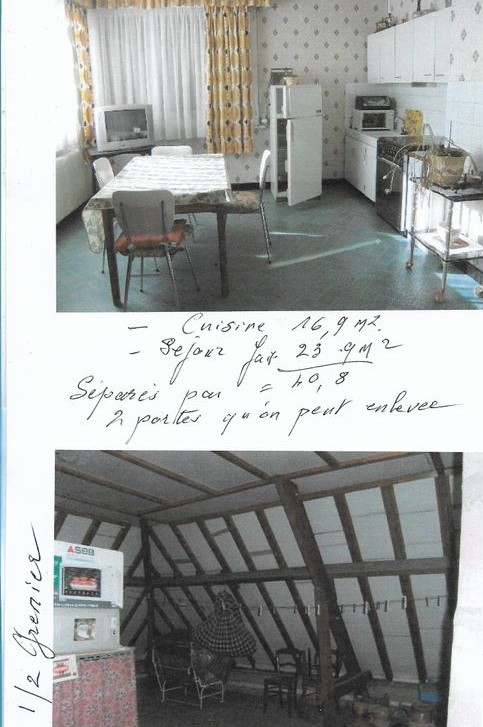 - Cuisine 16,9 m2.
- Séjour fait 23.9m2
= 40,8
Séparés par
2 portes qu'on peut enlever
1/2 Grenier
SEB